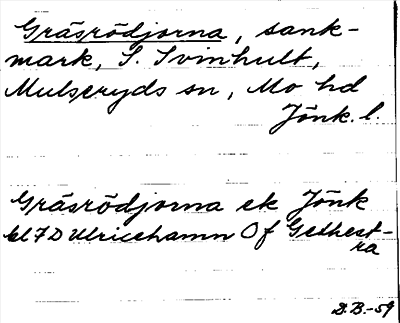 Gräsrödjorna, sank-
mark, S. Svinhult,
Mulseryds sn, Mo hd
Jönk. l.
Gräsrödjorna ek Jönk
bl 7D Ulricehamn Of Gethest-
ra
D.B.-59